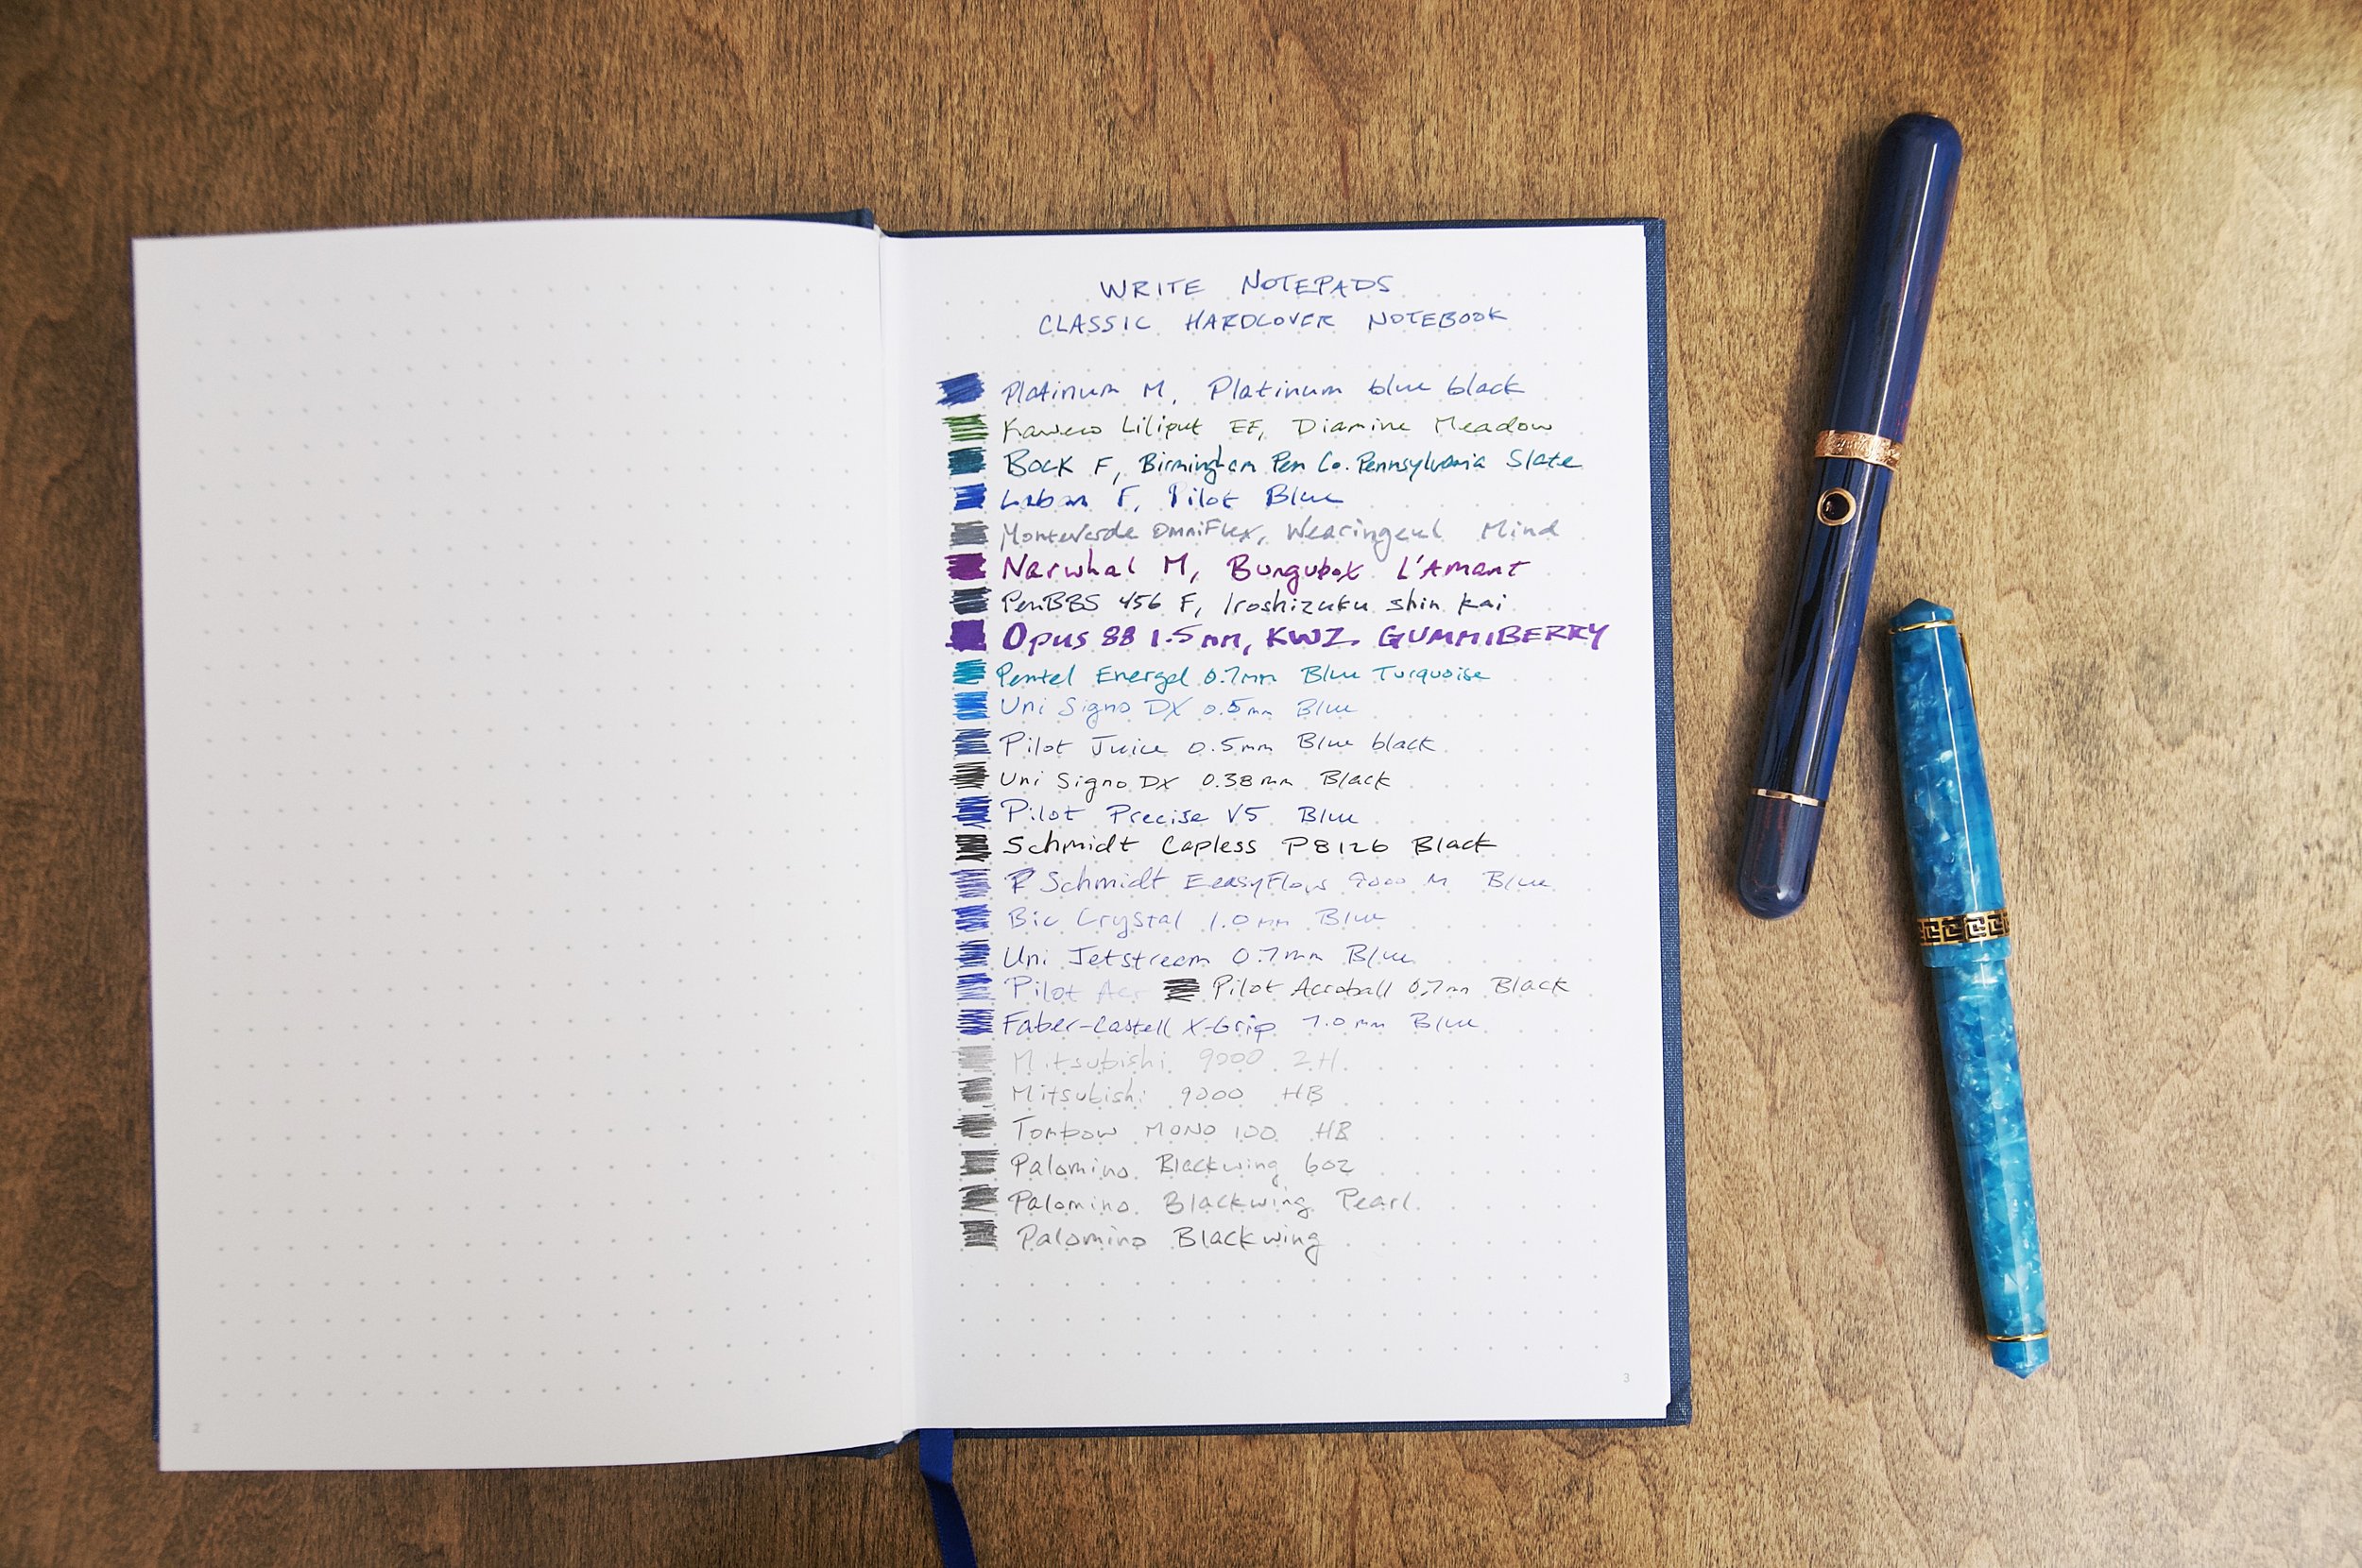 WRITE NOTEPADS
CLASSIC HARDCOVER NOTEBOOK
Platinum M, Platinum blue black
Kaweco Liliput EF, Diamine Meadow
Bock F, Birmingham Pen Co. Pennsylvania Slate
Laban F, Pilot Blue
Monteverde Omniflex, Wearingeul Mind
Narwhal M, Bungubox L'Amant
PenBBS 456 F, Iroshizuku shin kai
Opus 88 1.5mm, KWZ GUMMIBERRY
Pentel Energel 0.7mm Blue Turquoise
Uni Signo DX 0.5mm Blue
Pilot Juice 0.5mm Blue black
Uni Signo DX 0.38mm Black
Pilot Precise V5 Blue
Schmidt Capless P8126 Black
Schmidt EeasyFlow 9000 M Blue
Bic Crystal 1.0mm Blue
Uni Jetstream 0.7mm Blue
Pilot Acr Pilot Acroball 0.7mm Black
Faber-Castell X-Grip 1.0mm Blue
Mitsubishi 9000 2H
Mitsubishi 9000 HB
Tombow MONO 100 HB
Palomino Blackwing 602
Palomino Blackwing Pearl
Palomino Blackwing
2
3